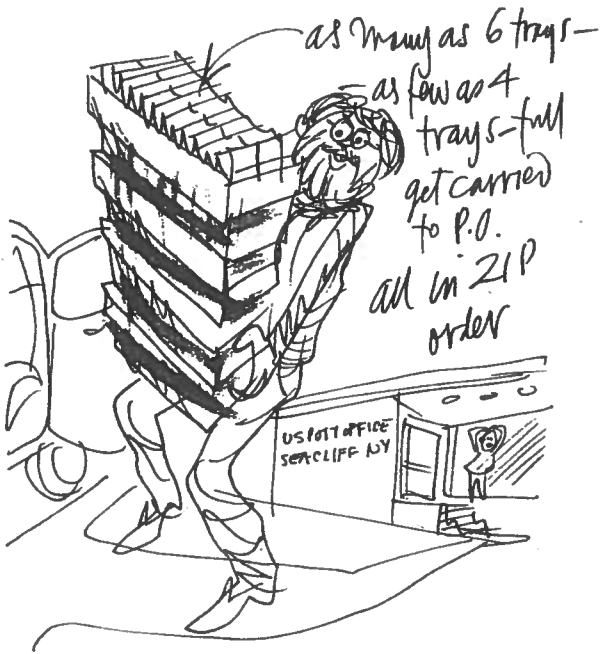 as many as 6 trays—
as few as 4
trays—full
get carried
to P.O.
all in ZIP
order
US POST OFFICE
SEA CLIFF NY